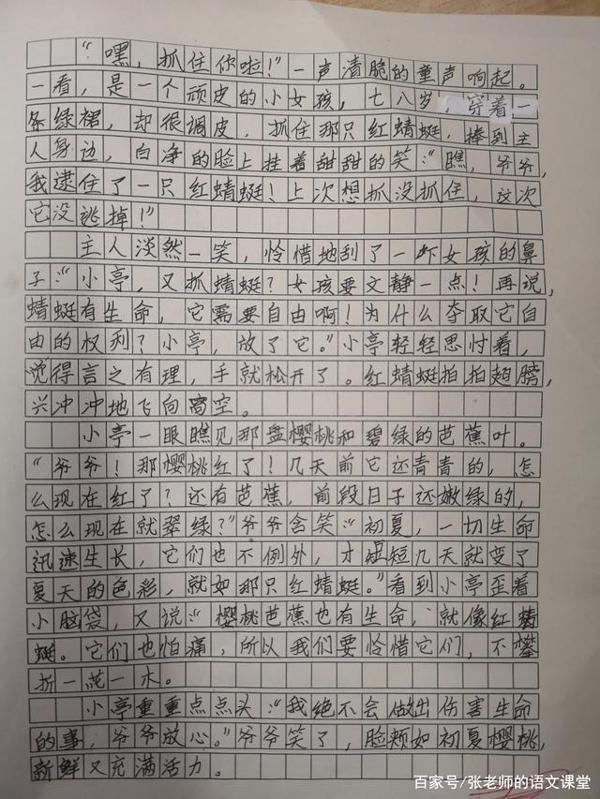 “嘿，抓住你啦！”一声清脆的童声响起。
一看，是一个顽皮的小女孩，七八岁，穿着一
条绿裙，却很调皮，抓住那只红蜻蜓，捧到主
人身边，白净的脸上挂着甜甜的笑：“瞧，爷爷，
我逮住了一只红蜻蜓！上次想抓没抓住，这次
它没逃掉！”
主人淡然一笑，怜惜地刮了一下女孩的鼻
子：“小亭，又抓蜻蜓？女孩要文静一点！再说，
蜻蜓有生命，它需要自由啊！为什么夺取它自
由的权利？小亭，放了它。”小亭轻轻思忖着，
觉得言之有理，手就松开了。红蜻蜓拍拍翅膀，
兴冲冲地飞向高空。
小亭一眼瞧见那盘樱桃和碧绿的芭蕉叶。
“爷爷！那樱桃红了！几天前它还青青的，怎
么现在红了？还有芭蕉，前段日子还嫩绿的，
怎么现在就翠绿？”爷爷含笑：“初夏，一切生命
迅速生长，它们也不例外，才短短几天就变了
夏天的色彩，就如那只红蜻蜓。”看到小亭歪着
小脑袋，又说：“樱桃芭蕉也有生命，就像红蜻
蜓。它们也怕痛，所以我们要怜惜它们，不攀
折一花一木。
小亭重重点点头：“我绝不会做出伤害生命
的事，爷爷放心。”爷爷笑了，脸颊如初夏樱桃，
新鲜又充满活力。
百家号/张老师的语文课堂